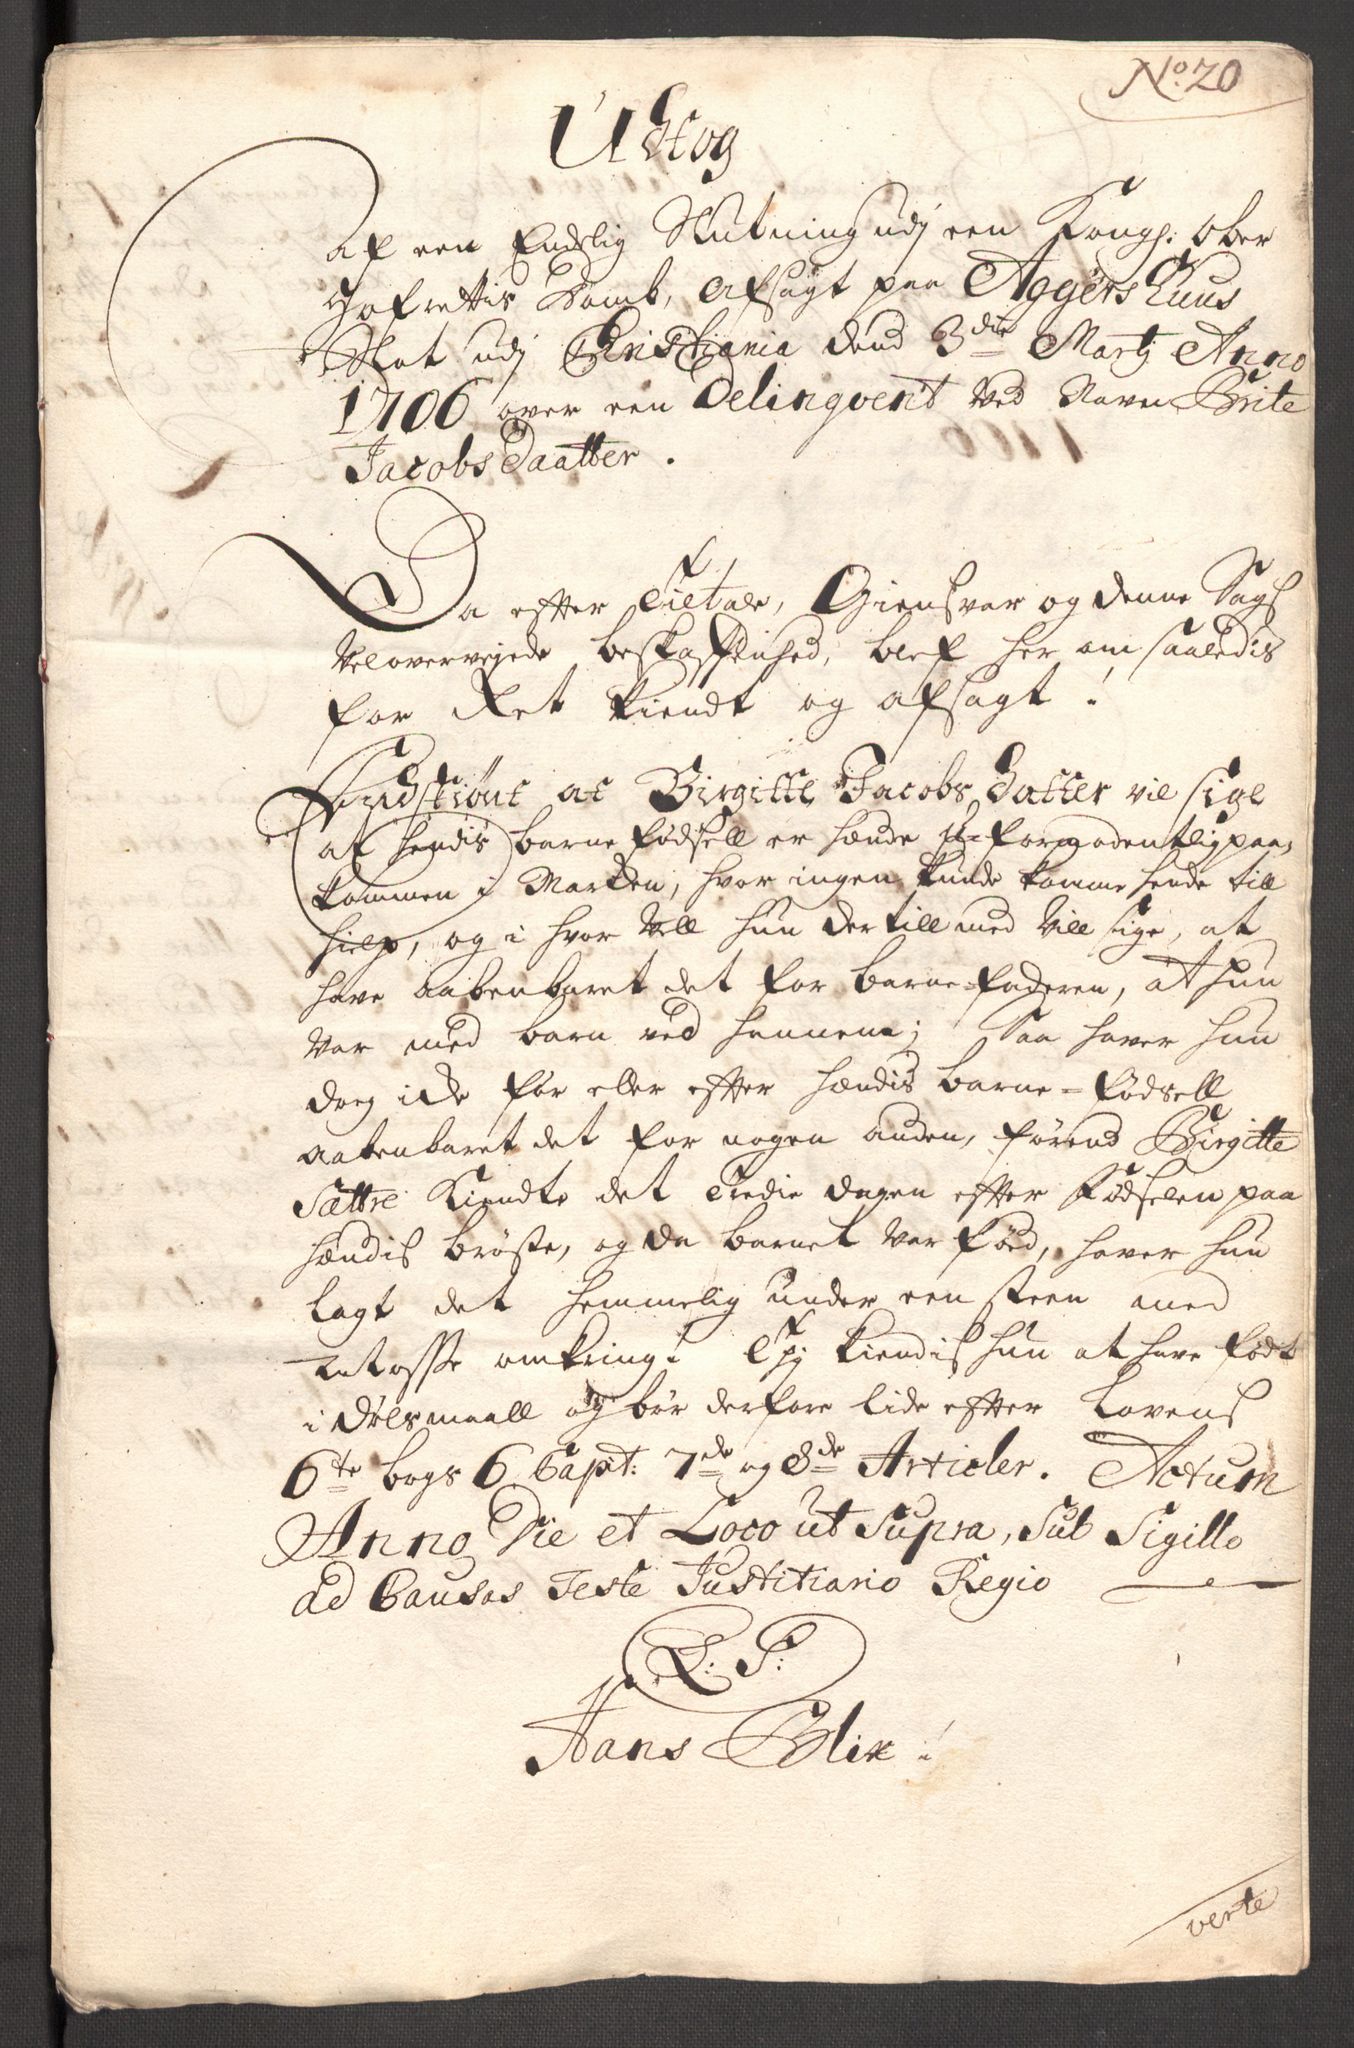 No. 20
Udtog
af een Endelig Slutning udj een Kongl: Ober
Hofrettis Domb, Afsagt paa AggersHuus
Slot udj Christiania dend 3die Martij Anno
1706 over een Delinqvent Ved Navn Brite
Jacobsdaatter.
Da efter Tiltale, Giensvar og denne Sags
Veloverveyede beskaffenhed, blef her om saaledis
for Ret kiendt og afsagt!
Endskiønt at Birgitte Jacobs datter vil sige
at hendis barnefødsell er hænde U-formodentlig paa-
kommen i Marken, hvor ingen kunde komme hende till
hielp, og i hvor Vell hun dertill med Vill sige, at
have aabenbaret det for barne-faderen, at hun
var med barn ved hannem; Saa haver hun
dog icke før eller efter hændis barne-fødsell
aabenbaret det for nogen anden, førend Birgitte
Sættre kiendte det tredie dagen efter Fødselen paa
hændis bryste, og da barnet var fød, haver hun
lagt det hemmelig under een steen med
omkring! Thj kiendis hun at have født
i dølsmaall og bør derfore lide efter Lovens
6te bogs 6 Capt: 7de og 8de Articler. Actum
Anno Die et Loco ut Supra, Sub Sigillo
ad Causas Teste Justitiario Regio
L: S:
Hans Blix!
verte